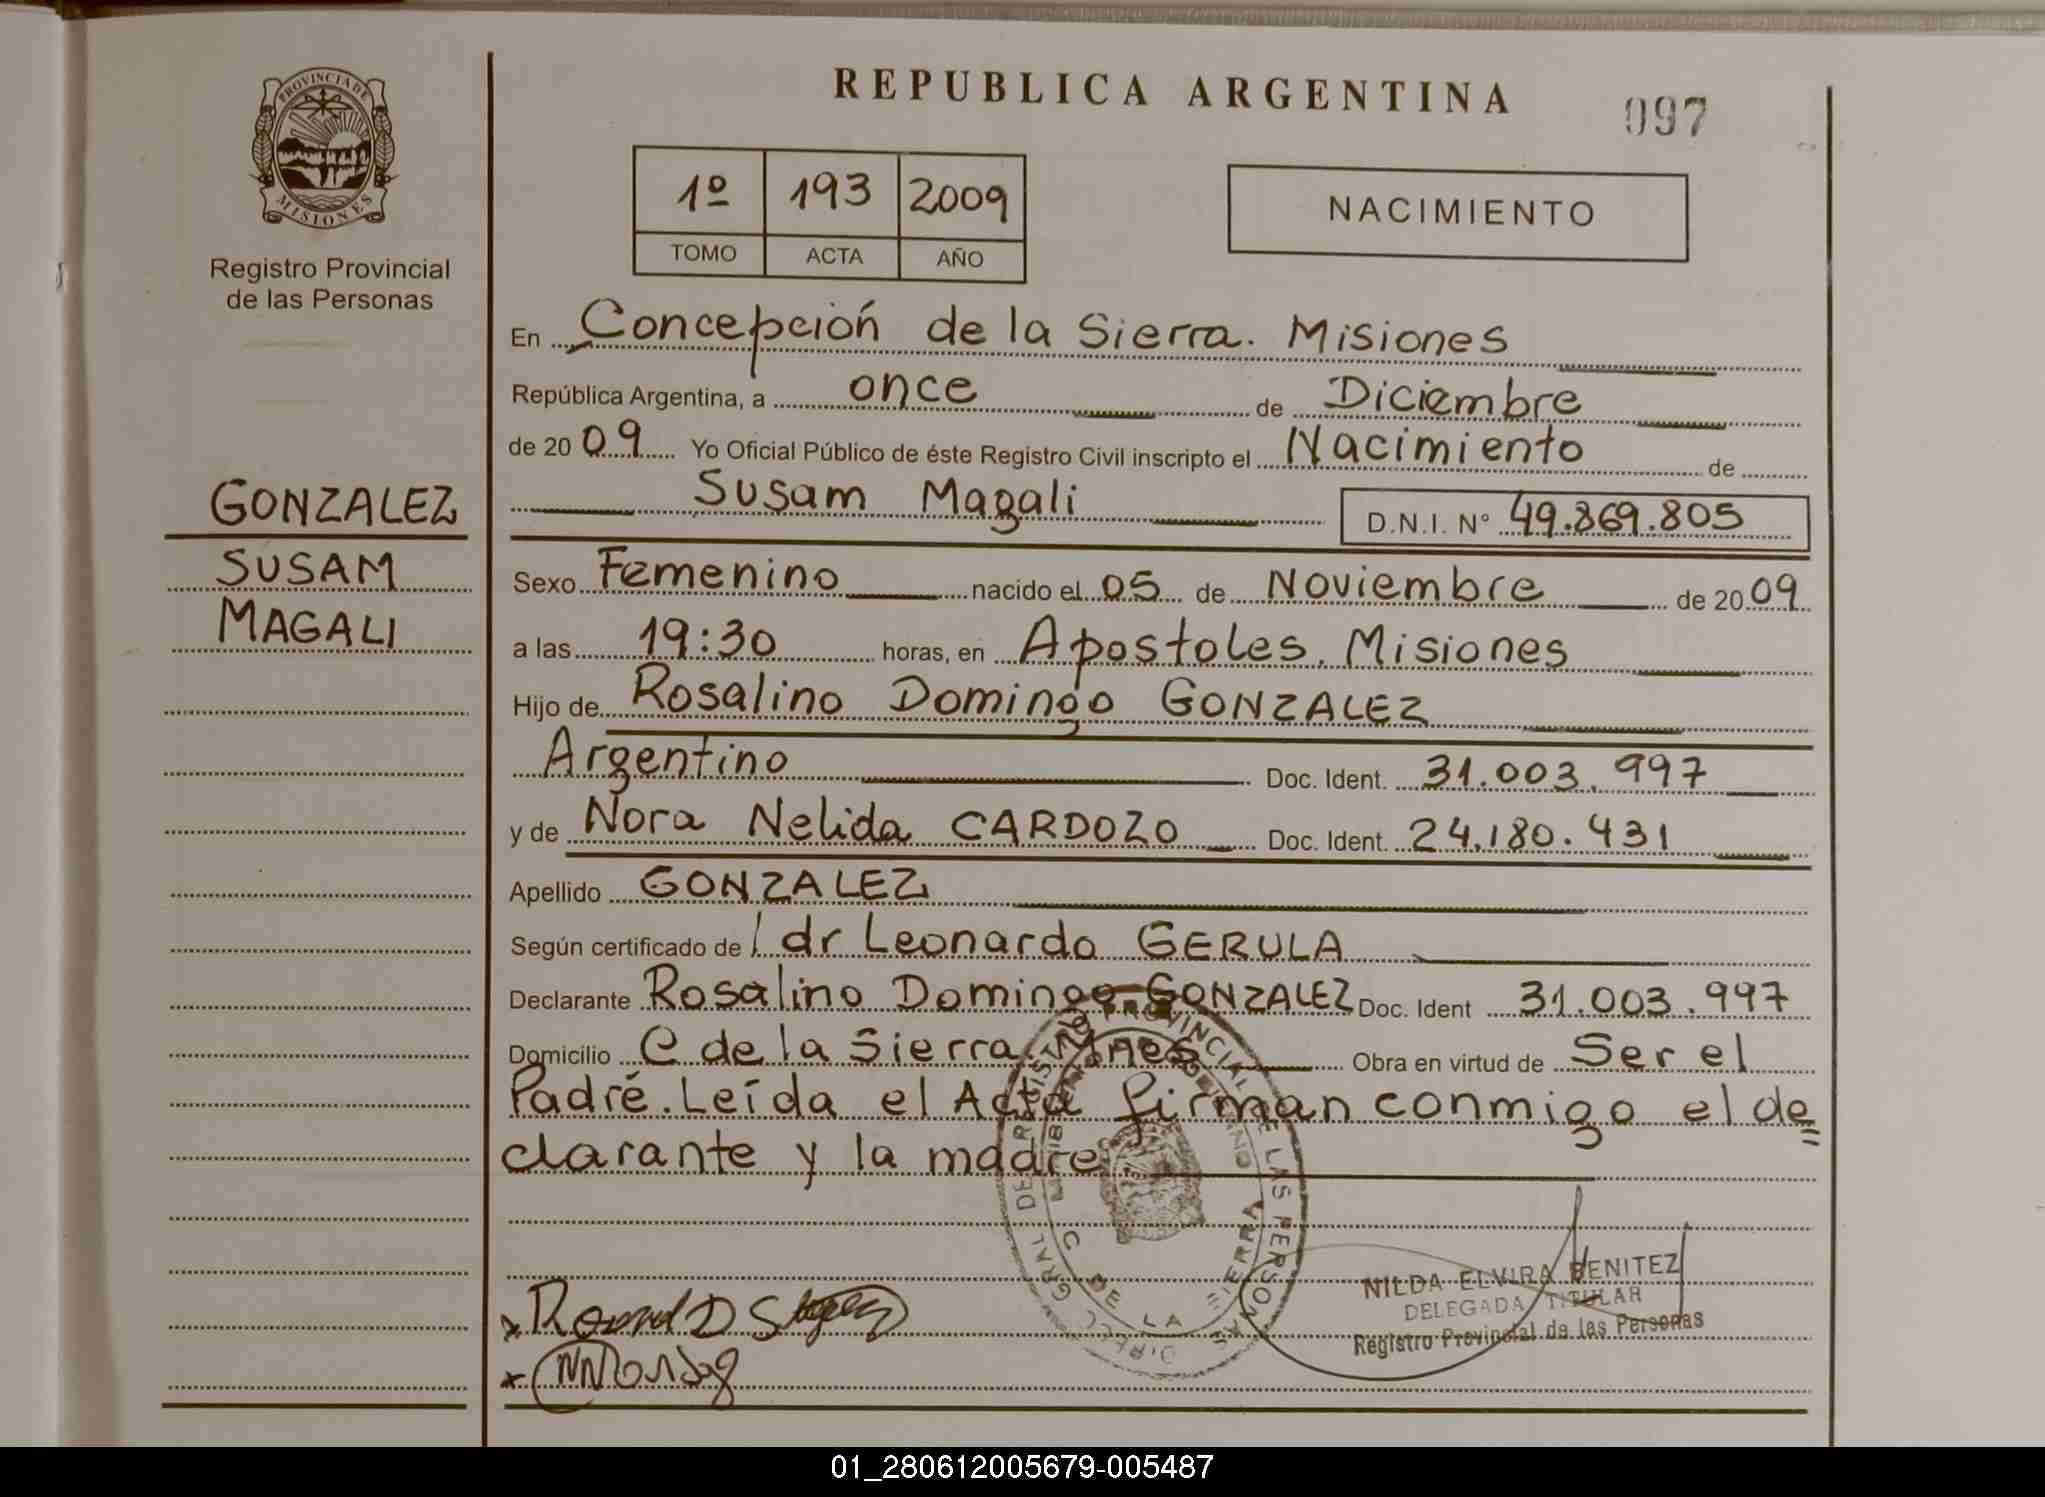 PROVINCIA DE
MISIONES
Registro Provincial
de las Personas
GONZALEZ
SUSAM
MAGALI
REPUBLICA ARGENTINA
097
1º 193 2009
TOMO ACTA AÑO
NACIMIENTO
En Concepción de la Sierra. Misiones
República Argentina, a once de Diciembre
de 2009 Yo Oficial Público de éste Registro Civil inscripto el Nacimiento de
Susam Magali D.N.I. N° 49.869.805
Sexo Femenino nacido el 05 de Noviembre de 2009
a las 19:30 horas, en Apostoles. Misiones
Hijo de Rosalino Domingo GONZALEZ
Argentino Doc. Ident. 31.003.997
y de Nora Nelida CARDOZO Doc. Ident. 24.180.431
Apellido GONZALEZ
Según certificado de l dr Leonardo GERULA
Declarante Rosalino Domingo GONZALEZ Doc. Ident 31.003.997
Domicilio C de la Sierra. Mnes Obra en virtud de Ser el
Padre. Leída el Acta firman conmigo el de=
clarante y la madre.
DIREC. GRAL DEL REGISTRO PROVINCIAL DE LAS PERSONAS
C. DE LA SIERRA
NILDA ELVIRA BENITEZ
DELEGADA TITULAR
Registro Provincial de las Personas
01_280612005679-005487